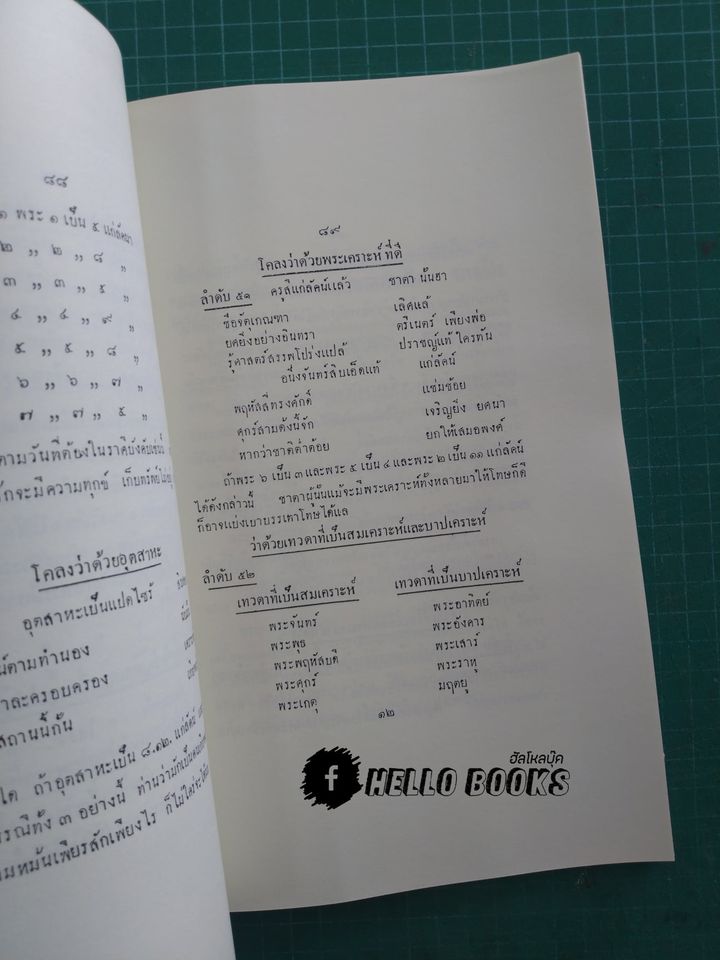 ๘๘
๑ พระ ๑ เป็น ๕ แก่ลัคนา
๒ ,, ๒ ,, ๘ ,,
๓ ,, ๓ ,, ๕ ,,
๔ ,, ๔ ,, ๙ ,,
๕ ,, ๕ ,, ๘ ,,
๖ ,, ๖ ,, ๗ ,,
๗ ,, ๗ ,, ๕ ,,
โคลงว่าด้วยอุตสาหะ
อุตสาหะเป็นแปดไซร้
น์ตามทำนอง
าละครอบครอง
สถานนี้กัน
ได ถ้าอุตสาหะเป็น ๘.๑๒. แก่ลัคน์
รณีทั้ง ๓ อย่างนี้ ท่านว่ามักเป็นคน
มหมั่นเพียรสักเพียงไร ก็ไม่ใคร่จะ
๘๙
โคลงว่าด้วยพระเคราะห์ ที่ดี
ลำดับ ๕๑ ครูสี่แก่ลัคน์แล้ว ชาตา นั้นฮา
ชื่อจัตุเกณฑา เลิศแล้
ยศยิ่งอย่างอินทรา ตรีเนตร์ เพียงพ่อ
รู้ศาสตร์สรรพโปร่งแปล้ ปราชญ์แท้ ใครทัน
อนึ่งจันทร์สิบเอ็ดแท้ แก่ลัคน์
พฤหัสสี่ทรงศักดิ์ แช่มช้อย
ศุกร์สามดังนี้จัก เจริญยิ่ง ยศนา
หากว่าชาติต่ำต้อย ยกให้เสมอพงค์
ถ้าพระ ๖ เป็น ๓ และพระ ๕ เป็น ๔ และพระ ๒ เป็น ๑๑ แก่ลัคน์
ได้ดังกล่าวนี้ ชาตาผู้นั้นแม้จะมีพระเคราะห์ทั้งหลายมาให้โทษก็ดี
ก็อาจแบ่งเบาบรรเทาโทษได้แล
ว่าด้วยเทวดาที่เป็นสมเคราะห์และบาปเคราะห์
ลำดับ ๕๒
เทวดาที่เป็นสมเคราะห์ เทวดาที่เป็นบาปเคราะห์
พระจันทร์ พระอาทิตย์
พระพุธ พระอังคาร
พระพฤหัสบดี พระเสาร์
พระศุกร์ พระราหุ
พระเกตุ มฤตยู
๑๒
ฮัลโหลบุ๊ค
f HELLO BOOKS